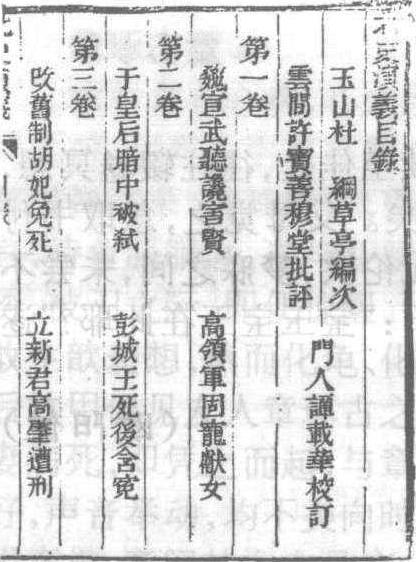 北史演義目錄
玉山杜　綱草亭編次
雲間許寶善穆堂批評
門人譚載華校訂
第一卷
魏宣武聽讒害賢　高領軍固寵獻女
第二卷
于皇后暗中被弒　彭城王死後含冤
第三卷
改舊制胡妃免死　立新君高肇遭刑